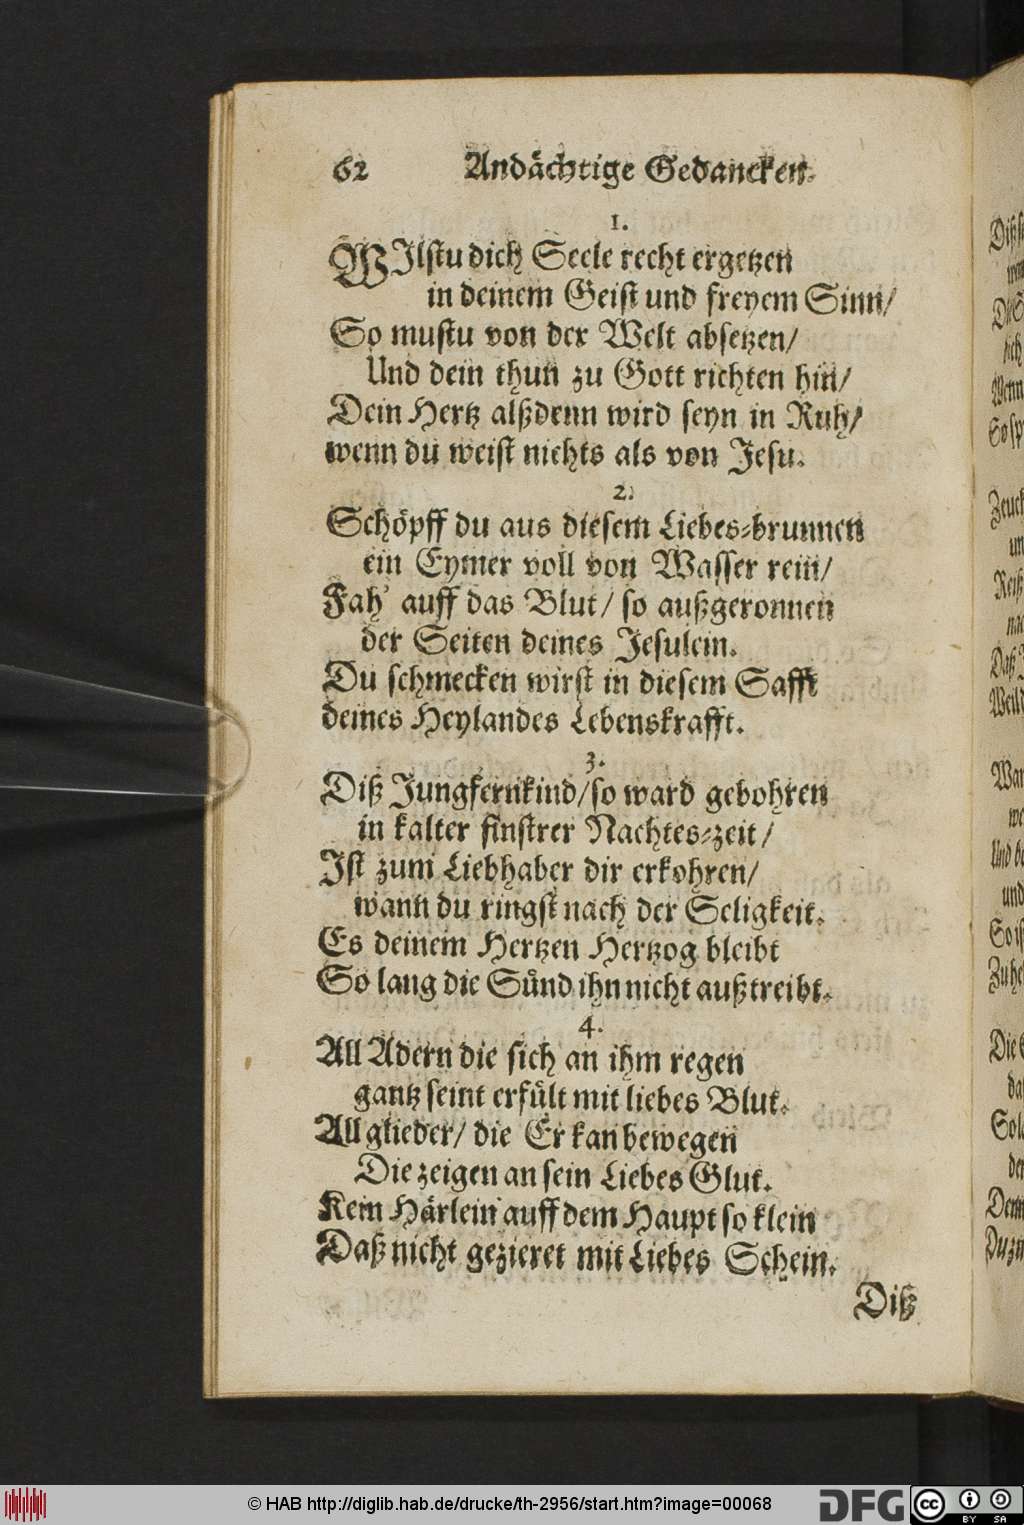 62 Andächtige Gedancken.
1.
WIlstu dich Seele recht ergetzen
in deinem Geist und freyem Sinn/
So mustu von der Welt absetzen/
Und dein thun zu Gott richten hin/
Dein Hertz alßdenn wird seyn in Ruh/
wenn du weist nichts als von Jesu.
2.
Schöpff du aus diesem Liebes-brunnen
ein Eymer voll von Wasser rein/
Fah' auff das Blut/ so außgeronnen
der Seiten deines Jesulein.
Du schmecken wirst in diesem Safft
deines Heylandes Lebenskrafft.
3.
Diß Jungfernkind/so ward gebohren
in kalter finstrer Nachtes-zeit/
Ist zum Liebhaber dir erkohren/
wann du ringst nach der Seligkeit.
Es deinem Hertzen Hertzog bleibt
So lang die Sünd ihn nicht außtreibt.
4.
All Adern die sich an ihm regen
gantz seint erfült mit liebes Blut.
All glieder/ die Er kan bewegen
Die zeigen an sein Liebes Glut.
Kein Härlein auff dem Haupt so klein
Daß nicht gezieret mit Liebes Schein.
Diß
© HAB http://diglib.hab.de/drucke/th-2956/start.htm?image=00068
DFG
cc
BY SA